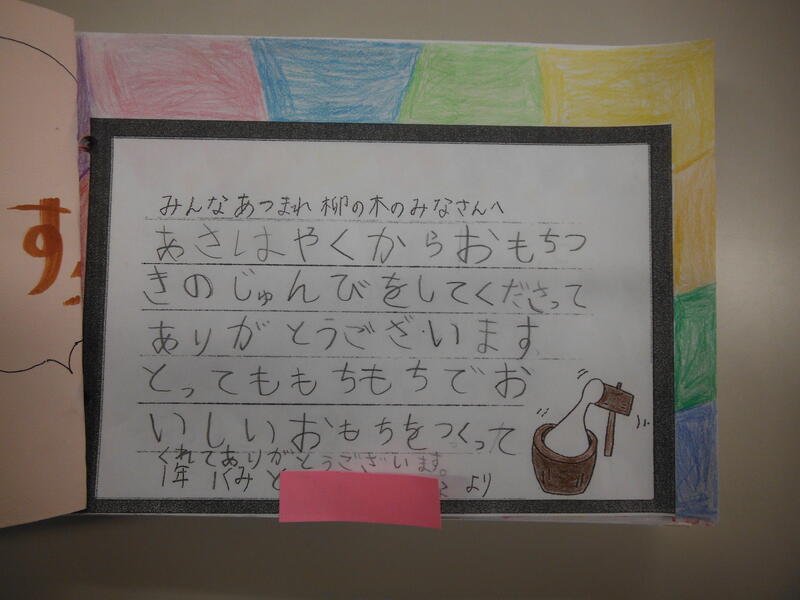 みんなあつまれ 柳の木のみなさんへ
あさはやくからおもちつ
きのじゅんびをしてくださって
ありがとうございます
とってももちもちでお
いしいおもちをつくって
くれてありがとうございます。
1年 1くみ と
より
す